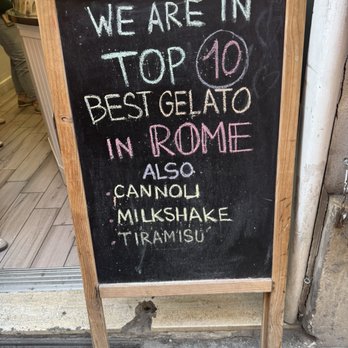 WE ARE IN
TOP 10
BEST GELATO
IN ROME
ALSO
CANNOLI
MILKSHAKE
TIRAMISÙ